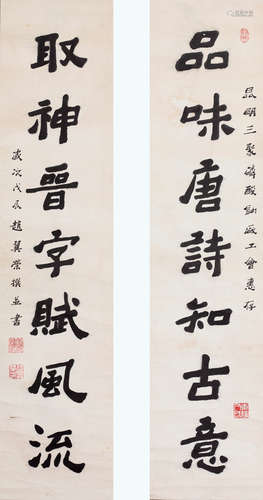 品味唐詩知古意
昆明三聚磷酸鈉廠工會惠存
取神晉字賦風流
歲次戊辰趙翼榮撰並書